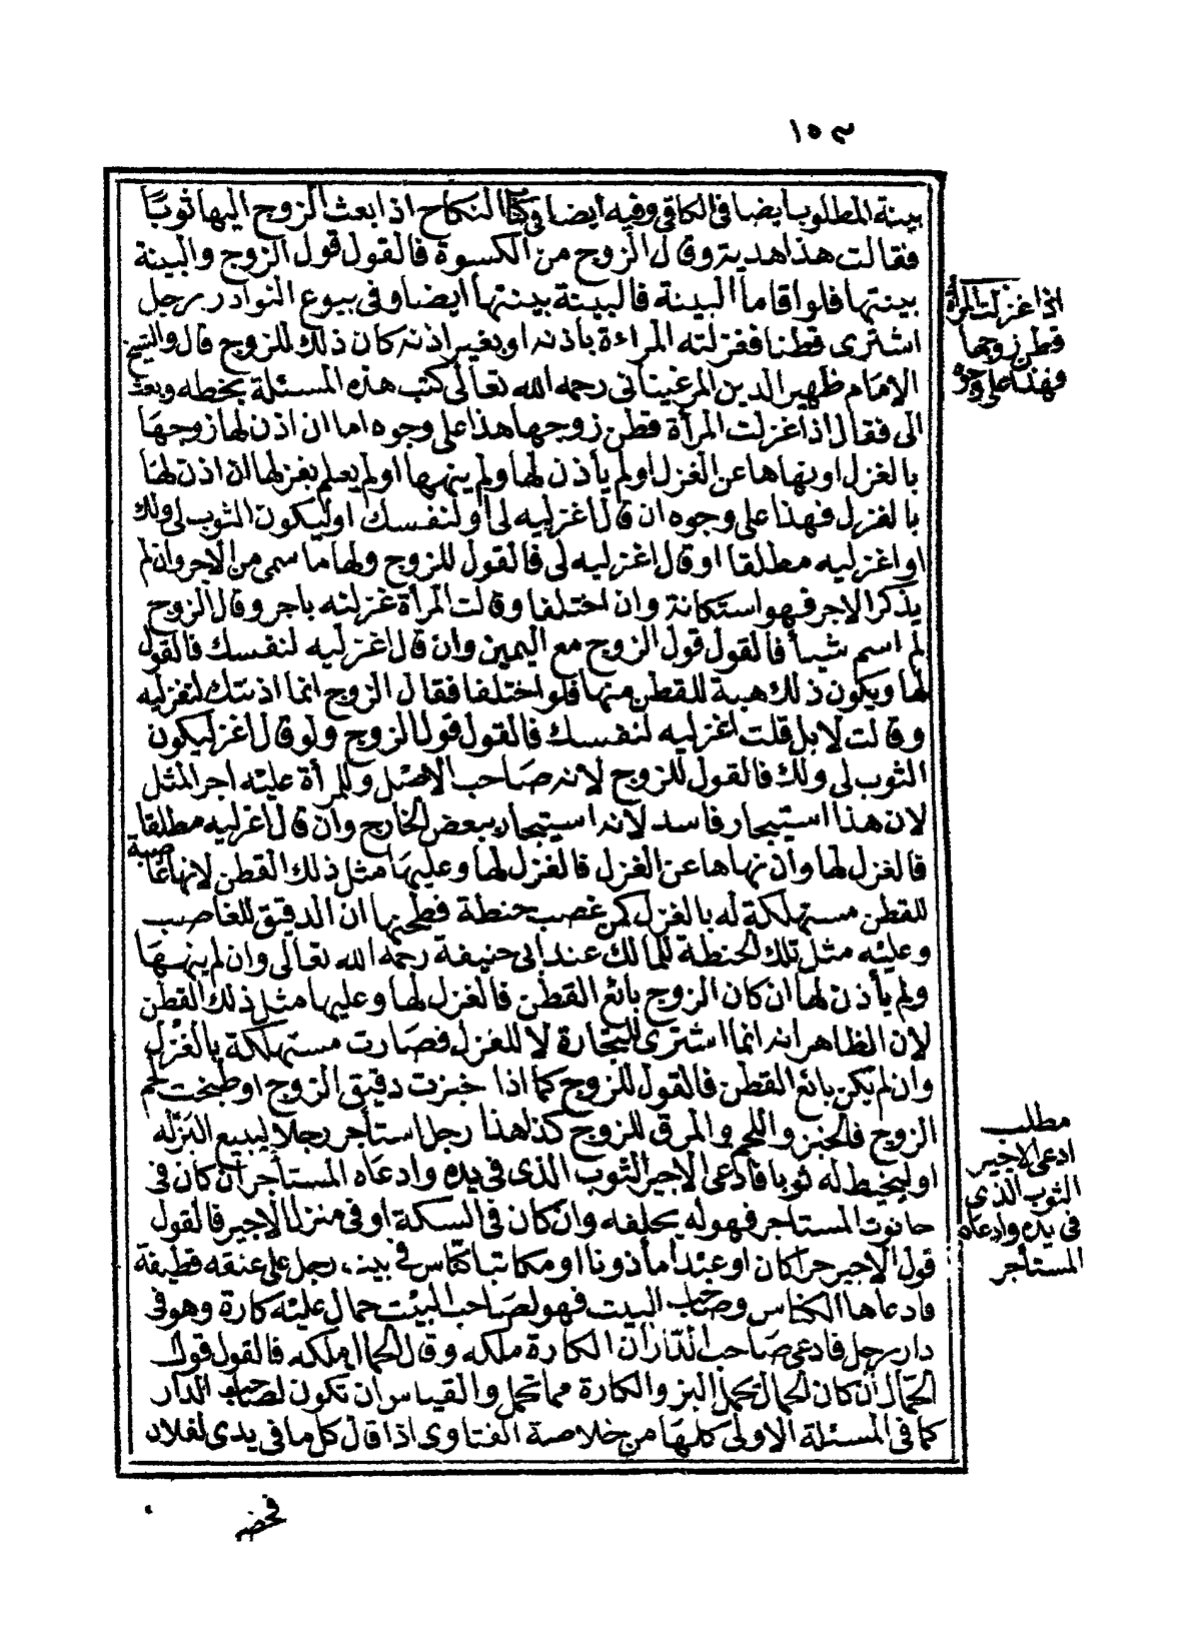 ١٥٣
بينة المطلوب ايضا فى الكافى وفيه ايضا فى كتاب النكاح اذا بعث الزوج اليها ثوبا
فقالت هذا هدية وقال الزوج من الكسوة فالقول قول الزوج والبينة
بينتها فلو اقاما البينة فالبينة بينتها ايضا وفى بيوع النوادر رجل
اشترى قطنا فغزلته المراءة باذنه او بغير اذنه كان ذلك للزوج قال والشيخ
الامام ظهير الدين المرغينانى رحمه الله تعالى كتب هذه المسئلة بخطه وبعث
الى فقال اذا غزلت المرأة قطن زوجها هذا على وجوه اما ان اذن لها زوجها
بالغزل او نهاها عن الغزل او لم يأذن لها ولم ينهها او لم يعلم بغزلها ان اذن لها
بالغزل فهذا على وجوه ان قال اغزليه لى او لنفسك او ليكون الثوب لى ولك
او اغزليه مطلقا او قال اغزليه لى فالقول للزوج ولها ما سمى من الاجر وان لم
يذكر الاجر فهو استكانة وان اختلفا وقالت المرأة غزلته باجر وقال الزوج
لم اسم شيأ فالقول قول الزوج مع اليمين وان قال اغزليه لنفسك فالقول
لها ويكون ذلك هبة للقطن منها فلو اختلفا فقال الزوج انما اذنتك لتغزليه
وقالت لا بل قلت اغزليه لنفسك فالقول قول الزوج ولو قال اغزل ليكون
الثوب لى ولك فالقول للزوج لانه صاحب الاصل وللمرأة عليه اجر المثل
لان هذا استيجار فاسد لانه استيجار ببعض الخارج وان قال اغزليه مطلقا
فالغزل لها وان نهاها عن الغزل فالغزل لها وعليها مثل ذلك القطن لانها غاصبة
للقطن مستهلكة له بالغزل كمن غصب حنطة فطحنها ان الدقيق للغاصب
وعليه مثل تلك الحنطة للمالك عند ابى حنيفة رحمه الله تعالى وان لم ينهها
ولم يأذن لها ان كان الزوج بائع القطن فالغزل لها وعليها مثل ذلك القطن
لان الظاهر انه انما اشترى للتجارة لا للغزل فصارت مستهلكة بالغزل
وان لم يكن بائع القطن فالقول للزوج كما اذا خبزت دقيق الزوج او طبخت لحم
الزوج فالخبز واللحم والمرق للزوج كذلهذا رجل استأجر رجلا ليبيع البزله
او ليخيط له ثوبا فادعى الاجير الثوب الذى فى يده وادعاه المستأجر ان كان فى
حانوت المستاجر فهو له يحلفه وان كان فى السكة او فى منزل الاجير فالقول
قول الاجير حرا كان او عبدا مأذونا او مكاتبا كناس فى بيت رجل على عنقه قطيفة
فادعاها الكناس وصاحب البيت فهو لصاحب البيت حمال عليه كارة وهو فى
دار رجل فادعى صاحب الدار ان الكارة ملكه وقال الحمال ملكه فالقول قول
الحمال ان كان الحمال يحمل البز والكارة مما تحمل والقياس ان تكون لصاحب الدار
كما فى المسئلة الاولى كلها من خلاصة الفتاوى اذا قال كل ما فى يدى لفلان
اذا غزلت المرأة
قطن زوجها
فهذا على وجوه
مطلب
ادعى الاجير
الثوب الذى
فى يده وادعاه
المستأجر
فحضر